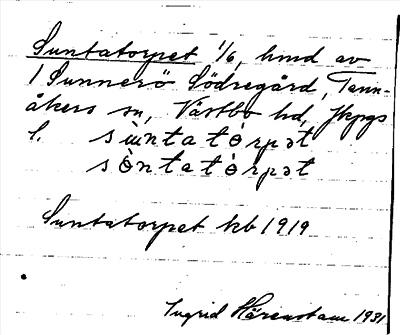 Suntatorpet 1/6, hmd av
1 Sunnerö Södregård, Tann-
åkers sn, Västbo hd, Jkpgs
l. sùntatòrpət
sòntatòrpət
Suntatorpet kb 1919
Ingrid Härenstam 1931